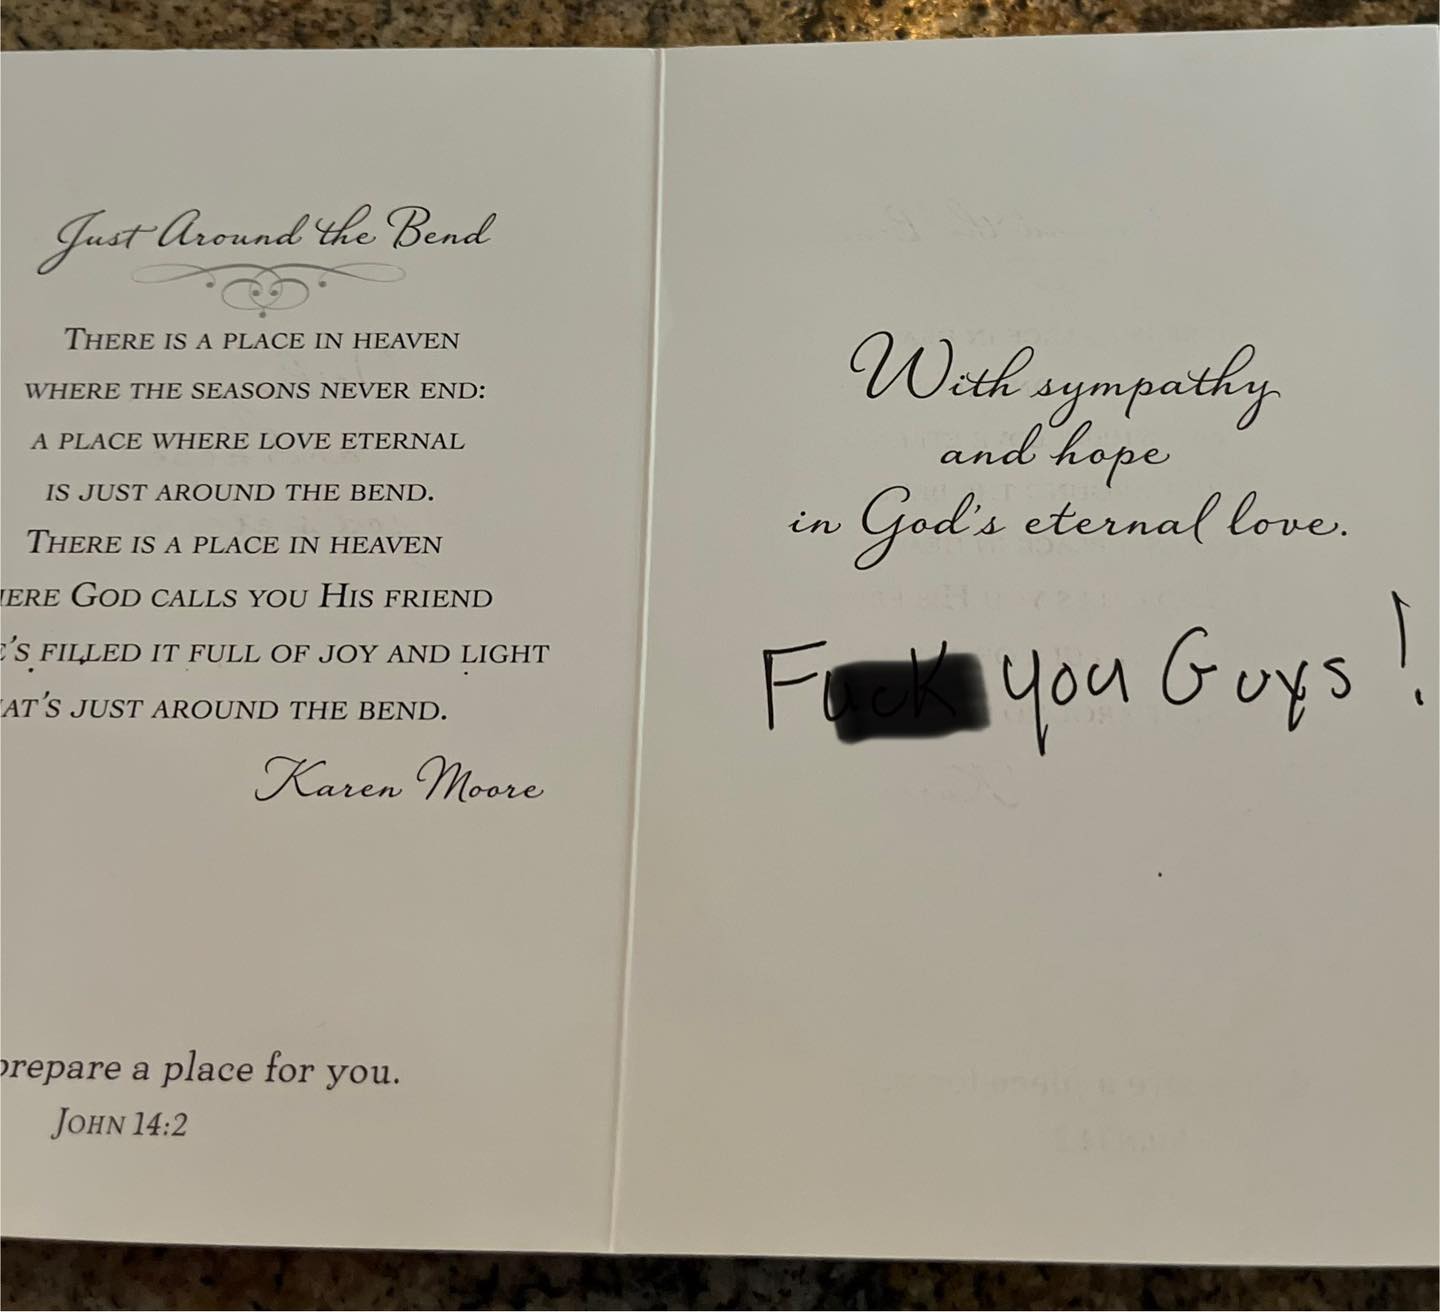 Just Around the Bend
THERE IS A PLACE IN HEAVEN
WHERE THE SEASONS NEVER END:
A PLACE WHERE LOVE ETERNAL
IS JUST AROUND THE BEND.
THERE IS A PLACE IN HEAVEN
ERE GOD CALLS YOU HIS FRIEND
'S FILLED IT FULL OF JOY AND LIGHT
AT'S JUST AROUND THE BEND.
Karen Moore
prepare a place for you.
JOHN 14:2
With sympathy
and hope
in God's eternal love.
Fuck you Guys!